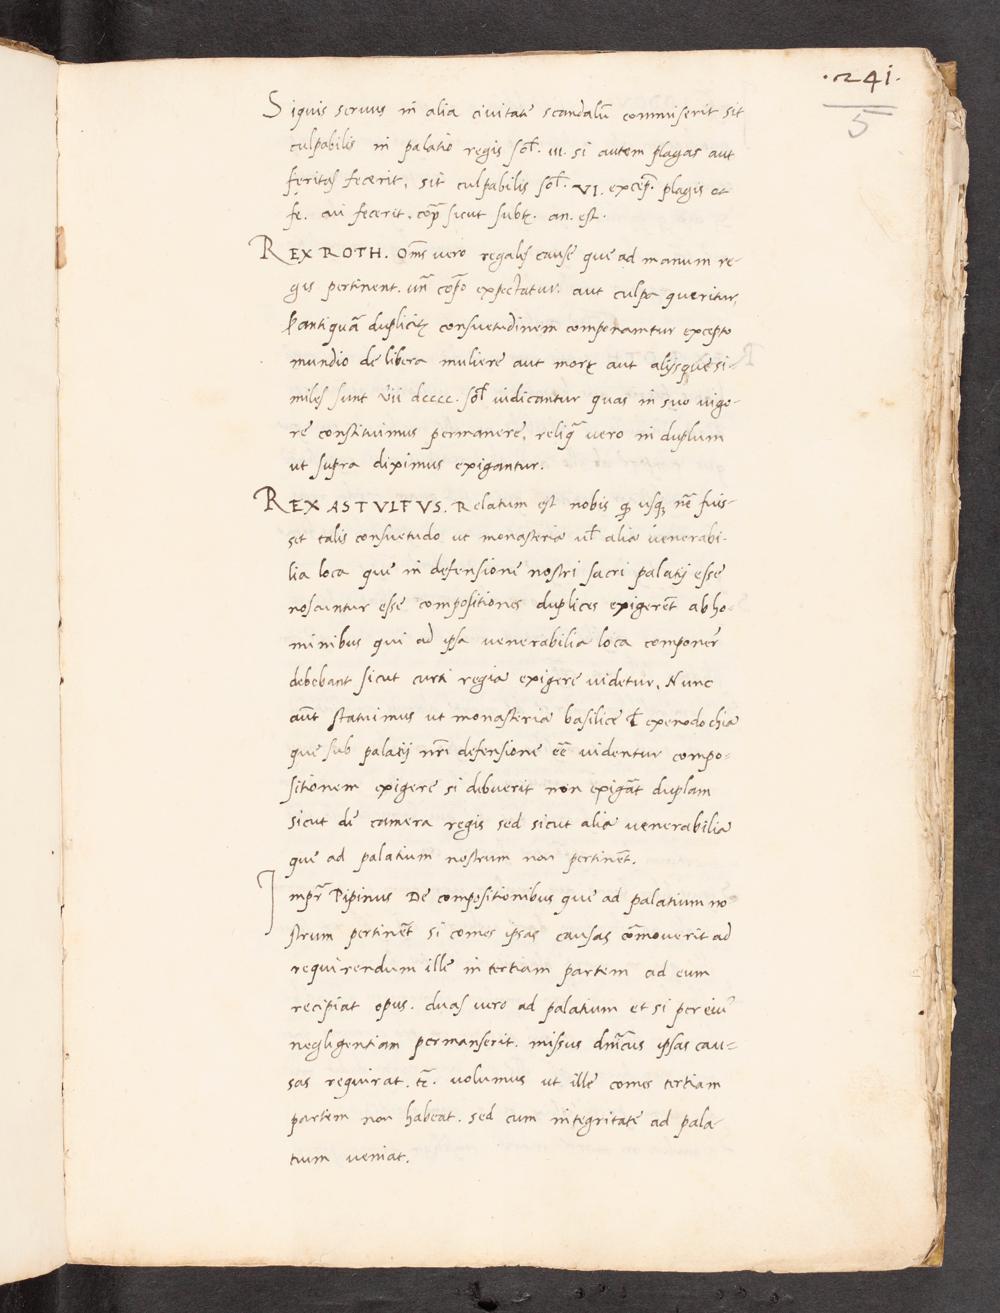 ·241·
5
Siquis seruus in alia civitate scandalũ commiserit sit
culpabilis in palatio regis sol̃. III. si autem plagas aut
feritas fecerit, sit culpabilis sol̃. VI. excep̃. plagis at
fe. cui fecerit. cõp̃ sicut subt̃. an. est.
REX ROTH. Om̃s vero regales cause que ad manum re-
gis pertinent. uñ cõpõ expectatur. aut culpa queritur,
ꝑ antiquã duplicit̃ consuetudinem componamtur excepto
mundio de libera muliere aut mort̃ aut alijsque si-
miles sunt vii dcccc. sol̃ iudicantur quas in suo uigo-
re constituimus permanere, reliq̃ vero in duplum
ut supra diximus exigantur.
REX ASTVLFVS. Relatum est nobis ꝙ usq; nc̃ fuis-
set talis consuetudo ut monasteria ul̃ alia venerabi-
lia loca que in defensione nostri sacri palatij esse
noscuntur esse compositiones duplices exigerẽt ab ho-
minibus qui ad ipsa venerabilia loca componer̃
debebant sicut curti regia exigere videtur, Nunc
aũt statuimus ut monasteria basilice ł exenodochia
que sub palatij nr̃i defensione eẽ videntur compo-
sitionem exigere si dibuerit non exigãt duplam
sicut de camera regis sed sicut alia venerabilia
que ad palatium nostrum non pertinẽt.
Impr̃ Pipinus De compositionibus que ad palatium no
strum pertinẽt si comes ipsas causas cõmoverit ad
requirendum ille in tertiam partem ad eum
recipiat opus. duas vero ad palatium et si per eiũ
negligentiam permanserit. missus dm̃cus ipsas cau-
sas requirat. tc̃. volumus ut ille comes tertiam
partem non habeat. sed cum integritate ad pala
tium veniat.